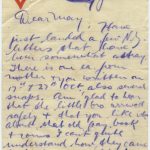 Dear May, Have
just landed a few N.Z.
letters that have
been somewhat astray.
There is one from
mother & you written on
17th & 23rd Oct, also several
snaps. Am glad to hear
that the little box arrived
safely & that you like
and that of pay book
& rooms I can't quite
understand how they came